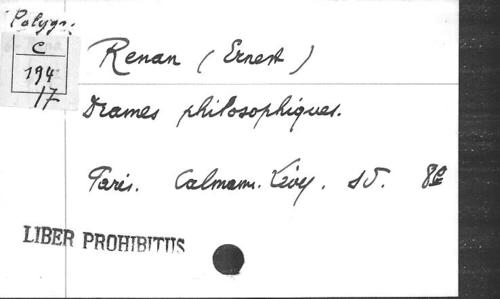 Polygr.
C
194
17
Renan (Ernest)
Drames philosophiques.
Paris. Calmann. Lévy. SD. 8º
LIBER PROHIBITUS